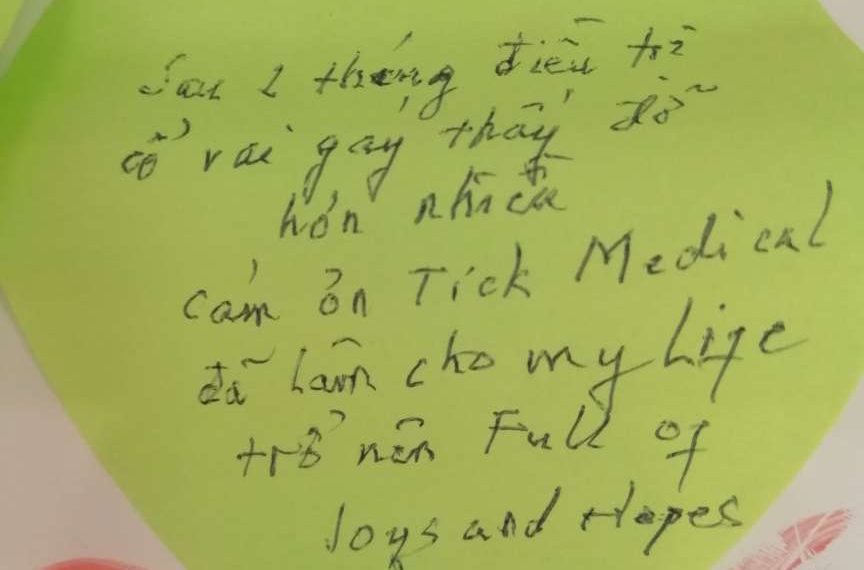 Sau 2 tháng điều trị
cổ vai gáy thấy đỡ
hơn nhiều
cảm ơn Tick Medical
đã làm cho my Life
trở nên Full of
Joys and Hopes